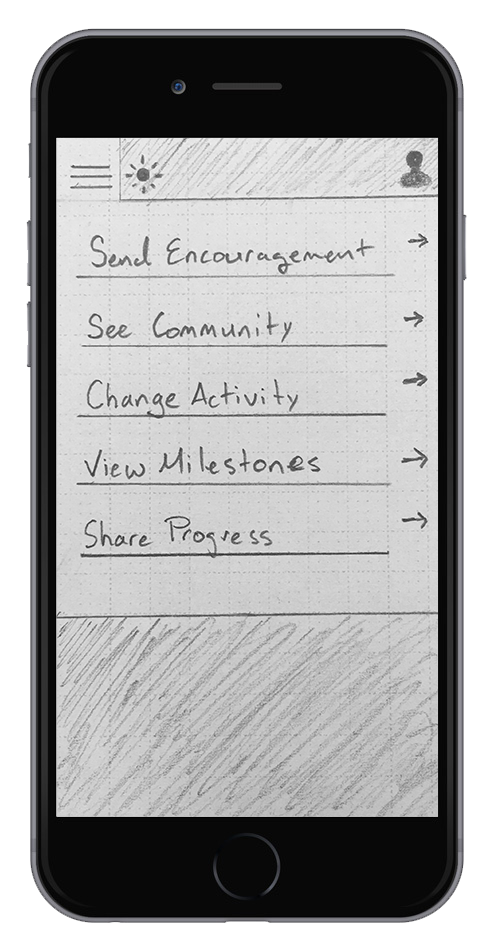 Send Encouragement
See Community
Change Activity
View Milestones
Share Progress